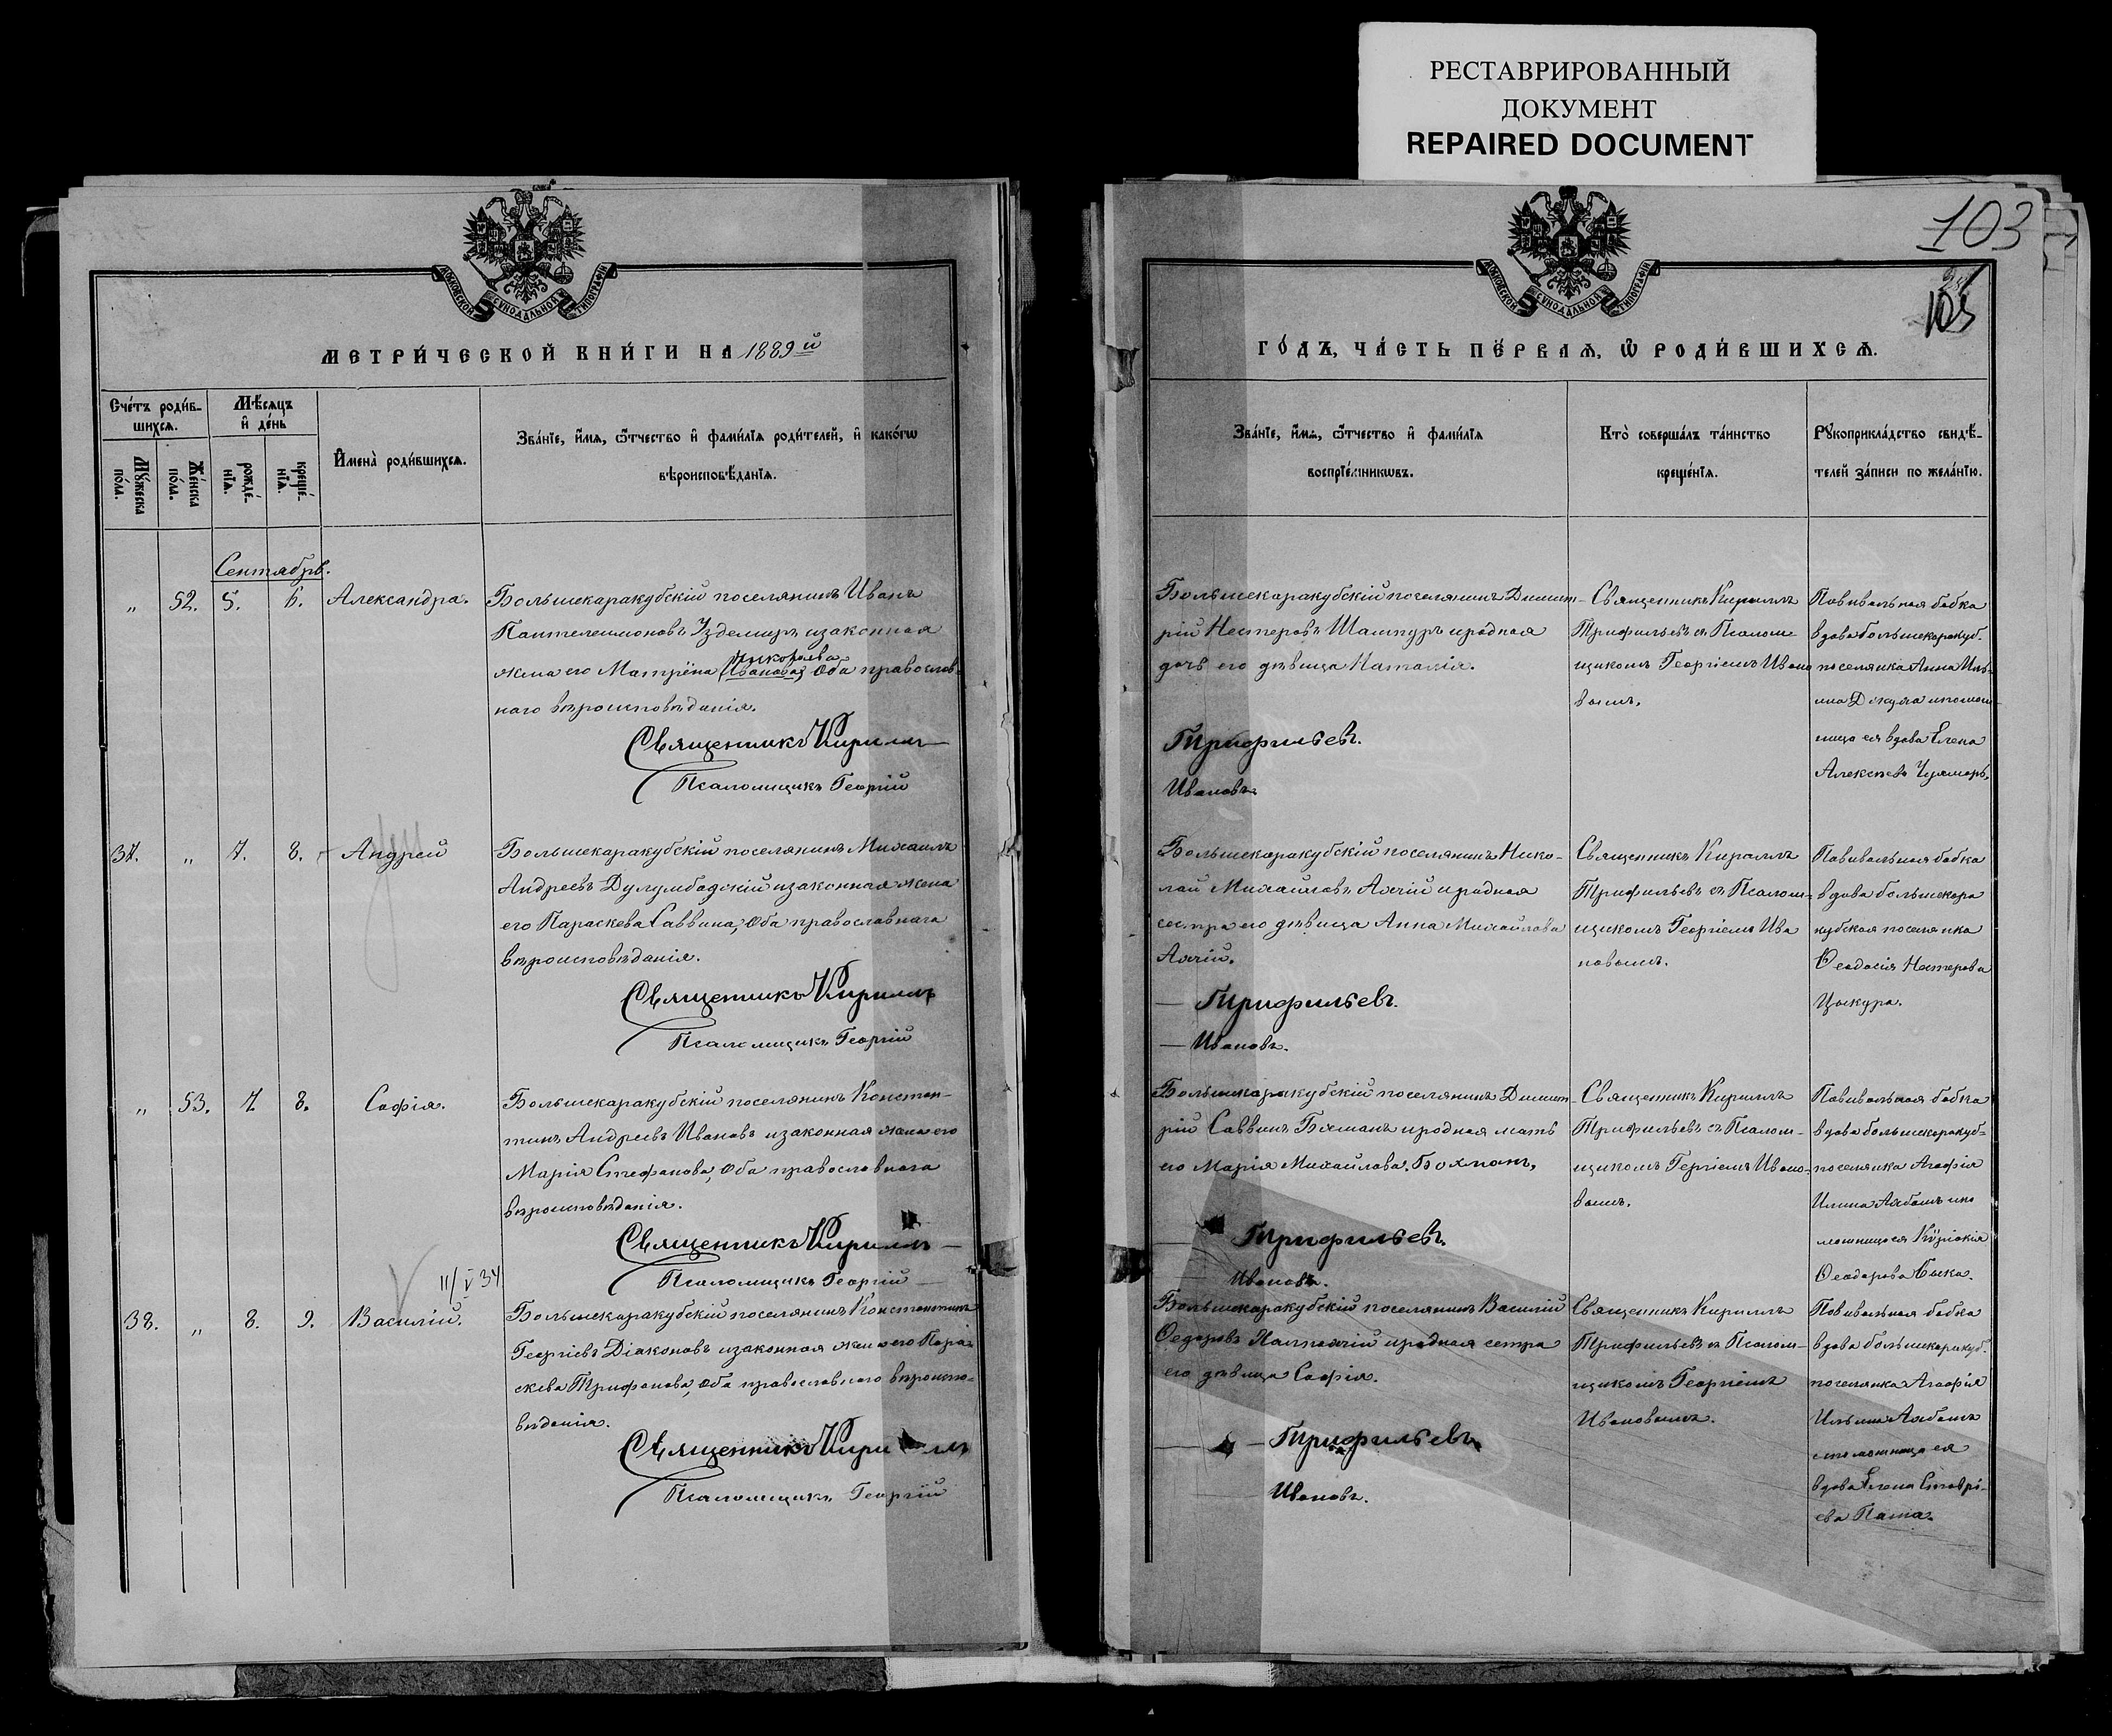 РЕСТАВРИРОВАННЫЙ
ДОКУМЕНТ
REPAIRED DOCUMENT
МОСКОВСКОЙ СѴНОДАЛЬНОЙ ТИПОГРАФІИ
МЕТРИ́ЧЕСКОЙ КНИ́ГИ НА 1889й
Сче́тъ роди́в-
шихсѧ.
Мѣ́сѧцъ
и҆ де́нь
Мꙋ́жеска
по́ла.
Же́нска
по́ла.
рожде́-
нїѧ.
креще́-
нїѧ.
И҆мена̀ роди́вшихсѧ.
Зва́нїе, и҆́мѧ, ѻ҆́тчество и҆ фамилі́ѧ роди́телей, и҆ како́гѡ
вѣроисповѣ́данїѧ.
Сентябрь.
„ 52. 5. 6. Александра.
Большекаракубскій поселянинъ Иванъ
Пантелеимоновъ Уздемиръ и законная
жена его Матрёна (Иванова) Оба православ-
наго вѣроисповѣданія.
Священникъ Кириллъ
Псаломщикъ Георгій
37. „ 7. 8. Андрей
Большекаракубскій поселянинъ Михаилъ
Андреевъ Дулумбадскій и законная жена
его Параскева Саввина, Оба православнаго
вѣроисповѣданія.
Священникъ Кириллъ
Псаломщикъ Георгій
„ 53. 7. 8. Софія.
Большекаракубскій поселянинъ Констан-
тинъ Андреевъ Ивановъ и законная жена его
Марія Стефанова, Оба православнаго
вѣроисповѣданія.
Священникъ Кириллъ
Псаломщикъ Георгій
11/V 34
38. „ 8. 9. Василій.
Большекаракубскій поселянинъ Константинъ
Георгіевъ Діаконовъ и законная жена его Пара-
скева Трифонова, Оба православнаго вѣроиспо-
вѣданія.
Священникъ Кириллъ
Псаломщикъ Георгій
103
МОСКОВСКОЙ СѴНОДАЛЬНОЙ ТИПОГРАФІИ
ГО́ДЪ, ЧА́СТЬ ПЕ́РВАѦ, Ѡ҆ РОДИ́ВШИХСѦ.
Зва́нїе, и҆́мѧ, ѻ҆́тчество и҆ фамилі́ѧ
воспрїе́мникѡвъ.
Кто̀ соверша́лъ та́инство
креще́нїѧ.
Рꙋкоприкла́дство свидѣ́-
телей за́писи по жела́нїю.
Большекаракубскій поселянинъ Димит-
рій Нестеровъ Шампуръ и родная
дочь его дѣвица Наталія.
Трифильевъ.
Ивановъ.
Священникъ Кириллъ
Трифильевъ съ Псалом-
щикомъ Георгіемъ Ивано
вымъ.
Повивальная бабка
вдова большекаракуб.
поселянка Анна Иль-
ина Джула и помощ-
ница ея вдова Елена
Алексѣева
Большекаракубскій поселянинъ Нико-
лай Михайловъ Аячій и родная
сестра его дѣвица Анна Михайлова
Аячій.
Трифильевъ.
Ивановъ.
Священникъ Кириллъ
Трифильевъ съ Псалом-
щикомъ Георгіемъ Ива
новымъ.
Повивальная бабка
вдова большекара
кубская поселянка
Ѳеодосія Нестерова
Цыкура.
Большекаракубскій поселянинъ Димит-
рій Саввинъ Бахманъ и родная мать
его Марія Михайлова Бахманъ.
Трифильевъ.
Ивановъ.
Священникъ Кириллъ
Трифильевъ съ Псалом-
щикомъ Гергіемъ Ивано-
вымъ.
Повивальная бабка
вдова большекаракуб-
поселянка Агафія
Илина Аябашъ и по
мощница ея Кѵріакія
Ѳеодорова
Большекаракубскій поселянинъ Василій
Ѳедоровъ и родная сестра
его дѣвица Софія.
Трифильевъ.
Ивановъ.
Священникъ Кириллъ
Трифильевъ съ Псалом-
щикомъ Георгіемъ
Ивановымъ.
Повивальная бабка
вдова большекаракуб.
поселянка Агафія
Ильина Аябашъ
и помощница ея
вдова Елена Ставрі-
ева Папа.